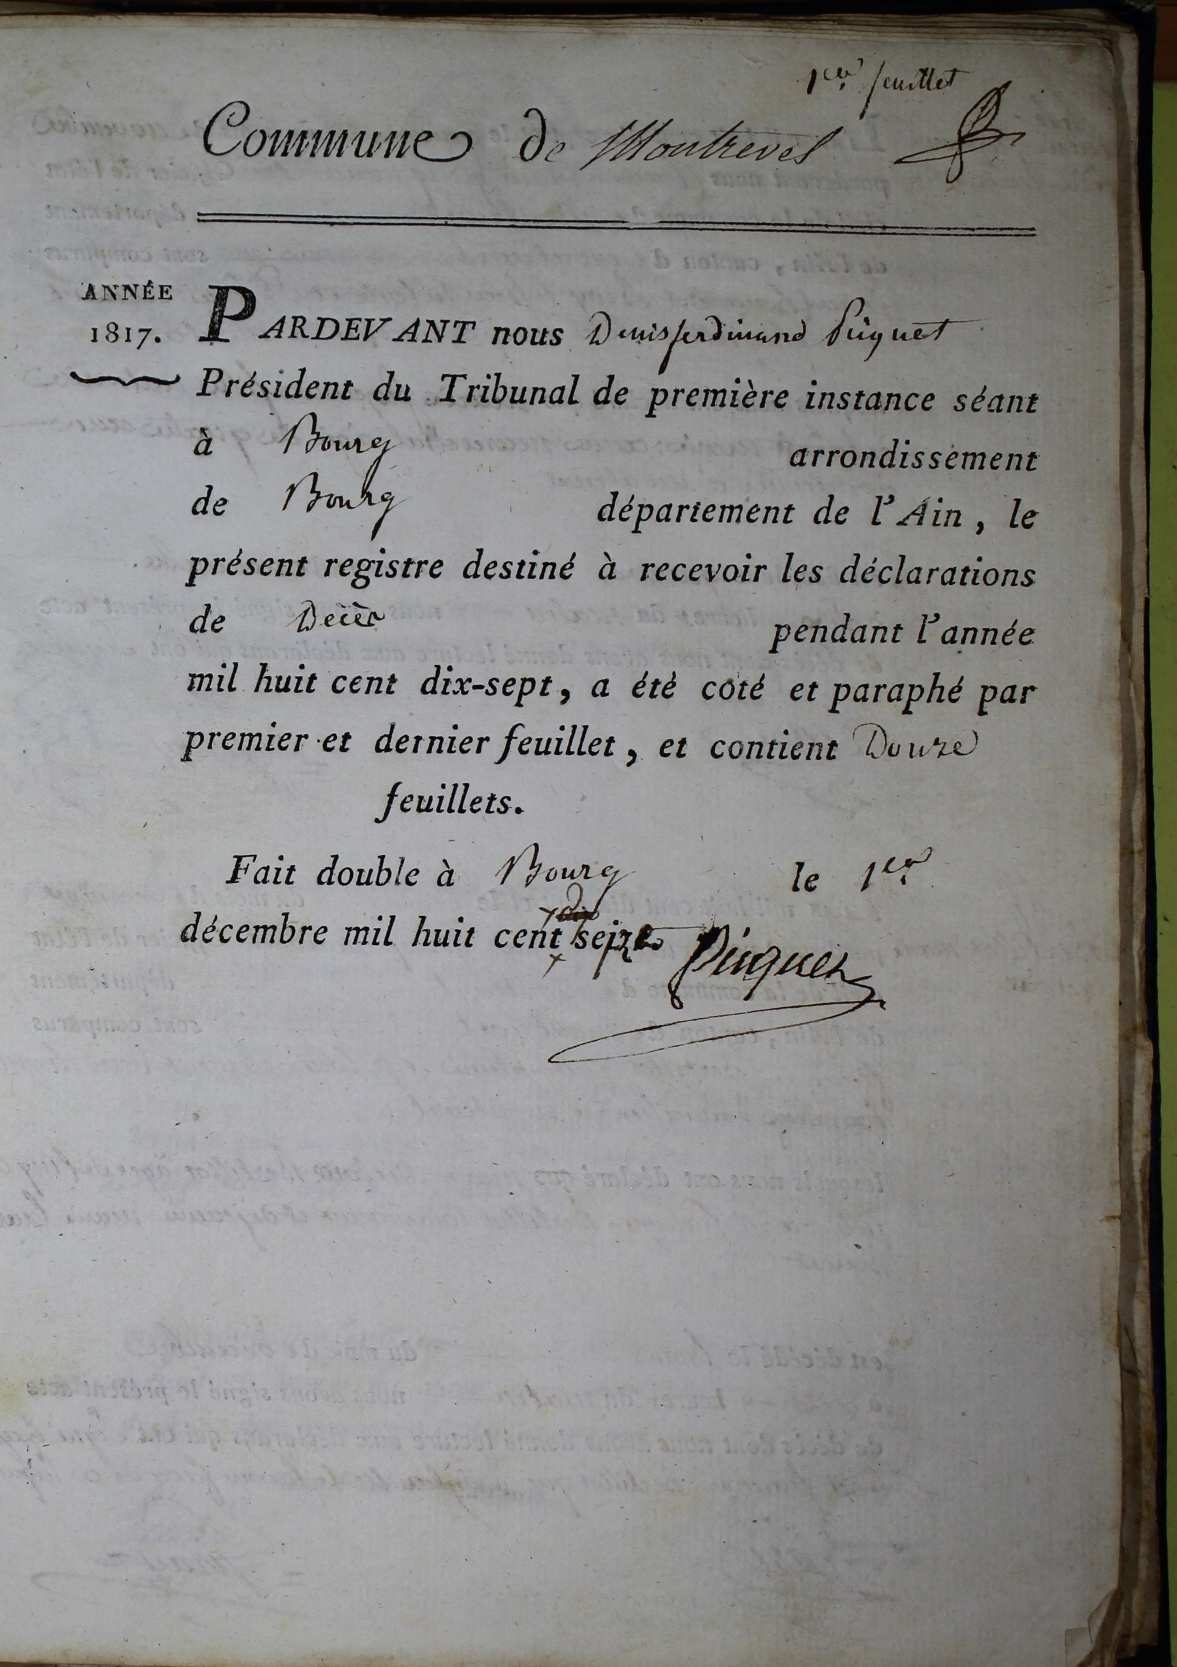 1er feuillet
Commune de Montrevel
ANNÉE
1817.
PARDEVANT nous Denis ferdinand Piquet
Président du Tribunal de première instance séant
à Bourg arrondissement
de Bourg département de l'Ain, le
présent registre destiné à recevoir les déclarations
de Décès pendant l'année
mil huit cent dix-sept, a été coté et paraphé par
premier et dernier feuillet, et contient Douze
feuillets.
Fait double à Bourg le 1er
décembre mil huit cent seize
Piquet